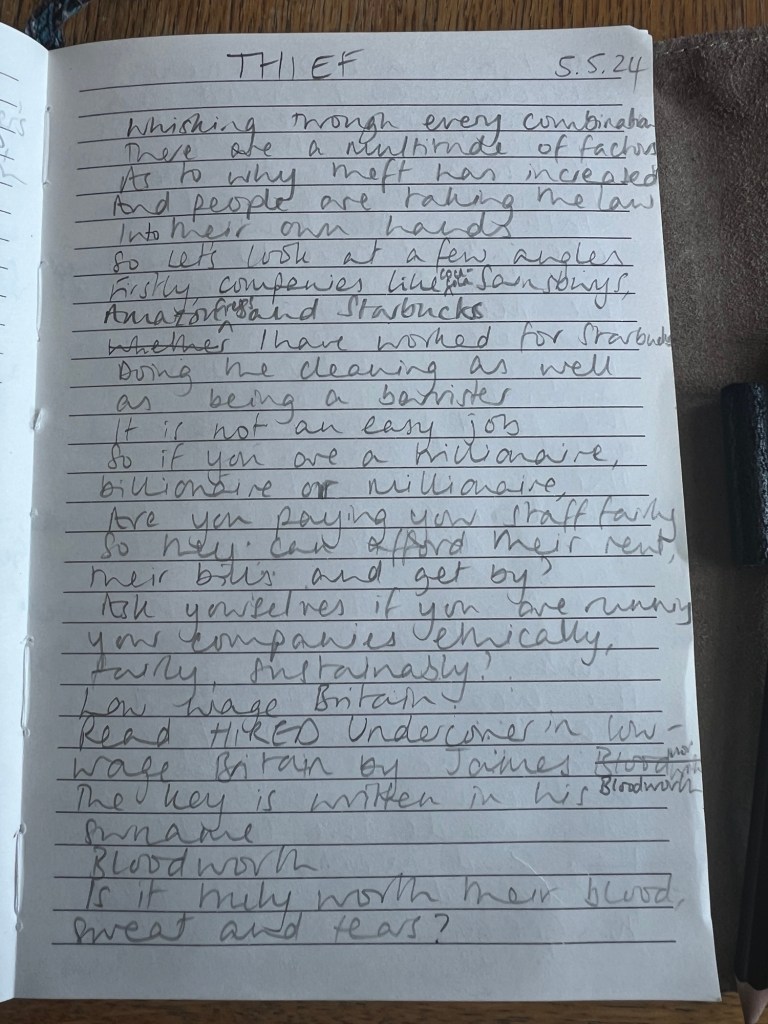 THIEF 5.5.24
Whisking through every combination
There are a multitude of factors
As to why theft has increased
And people are taking the law
Into their own hands
So let's look at a few angles
Firstly, companies like Sainsburys,
Amazon Fresh and Starbucks
whether I have worked for Starbucks
Doing the cleaning as well
as being a barrister
It is not an easy job
So if you are a trillionaire,
billionaire or millionaire,
Are you paying your staff fairly
So they can afford their rent,
their bills and get by?
Ask yourselves if you are running
your companies ethically,
fairly, sustainably?
Low Wage Britain.
Read HIRED Undercover in low-
wage Britain by James Bloodworth
The key is written in his
surname
Bloodworth
Is it truly worth their blood,
sweat and tears?